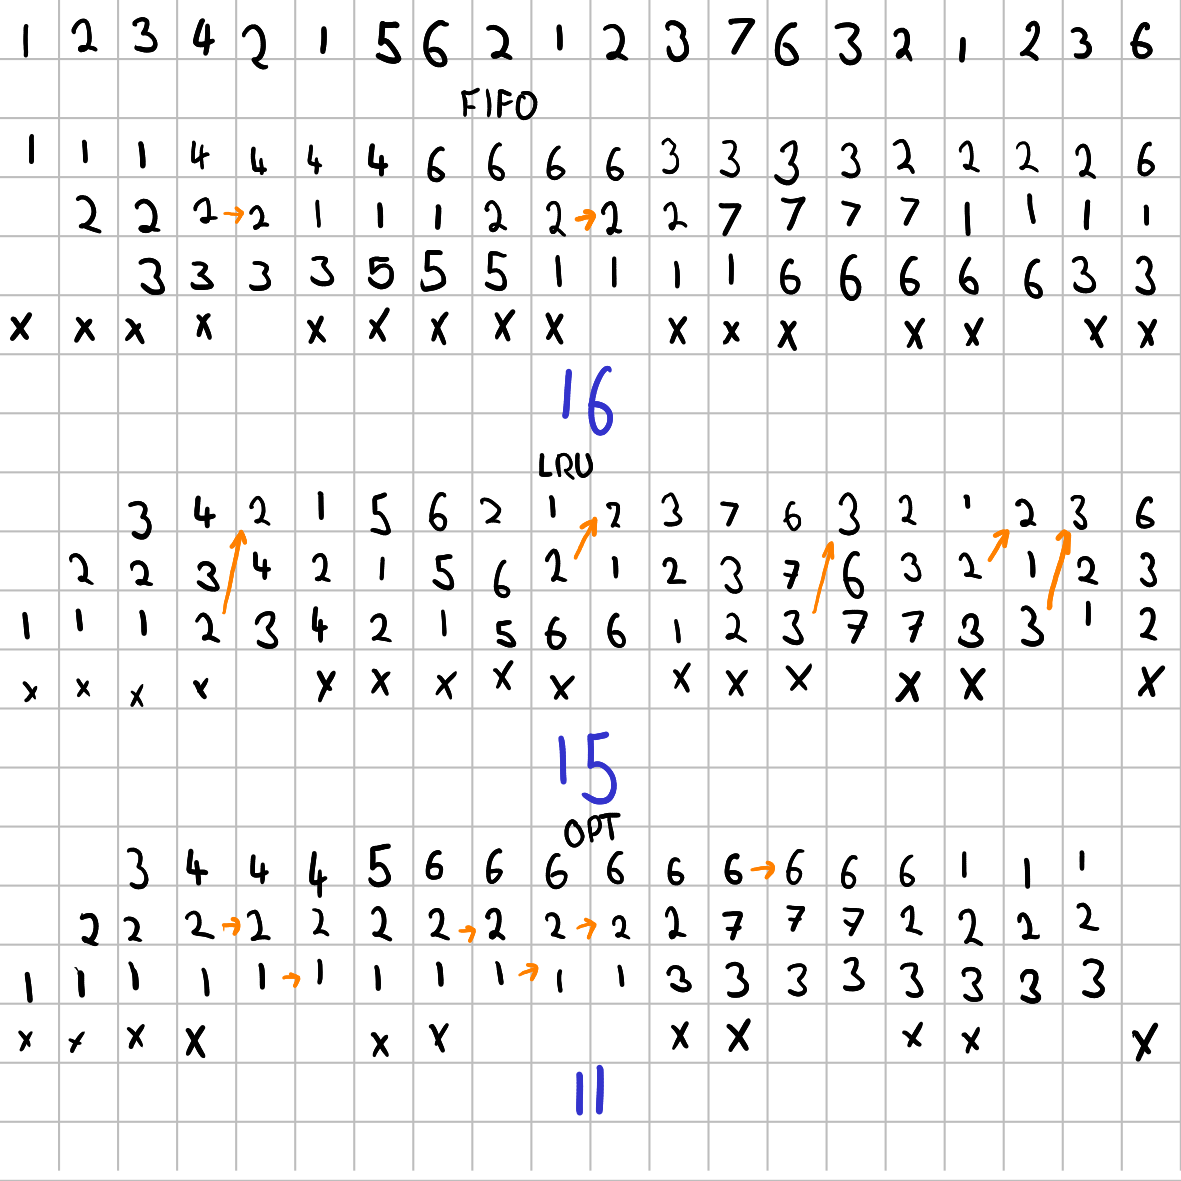 1 2 3 4 2 1 5 6 2 1 2 3 7 6 3 2 1 2 3 6
FIFO
1 1 1 4 4 4 4 6 6 6 6 3 3 3 3 2 2 2 2 6
2 2 2 → 2 1 1 1 2 2 → 2 2 7 7 7 7 1 1 1 1
3 3 3 3 5 5 5 1 1 1 1 6 6 6 6 6 3 3
x x x x x x x x x x x x x x x x
16
LRU
3 4 2 1 5 6 2 1 2 3 7 6 3 2 1 2 3 6
2 2 3 4 2 1 5 6 2 1 2 3 7 6 3 2 1 2 3
1 1 1 2 3 4 2 1 5 6 6 1 2 3 7 7 3 3 1 2
x x x x x x x x x x x x x x x
15
OPT
3 4 4 4 5 6 6 6 6 6 6 → 6 6 6 1 1 1
2 2 2 → 2 2 2 2 → 2 2 → 2 2 7 7 7 2 2 2 2
1 1 1 1 1 → 1 1 1 1 → 1 1 3 3 3 3 3 3 3 3
x x x x x x x x x x x
11